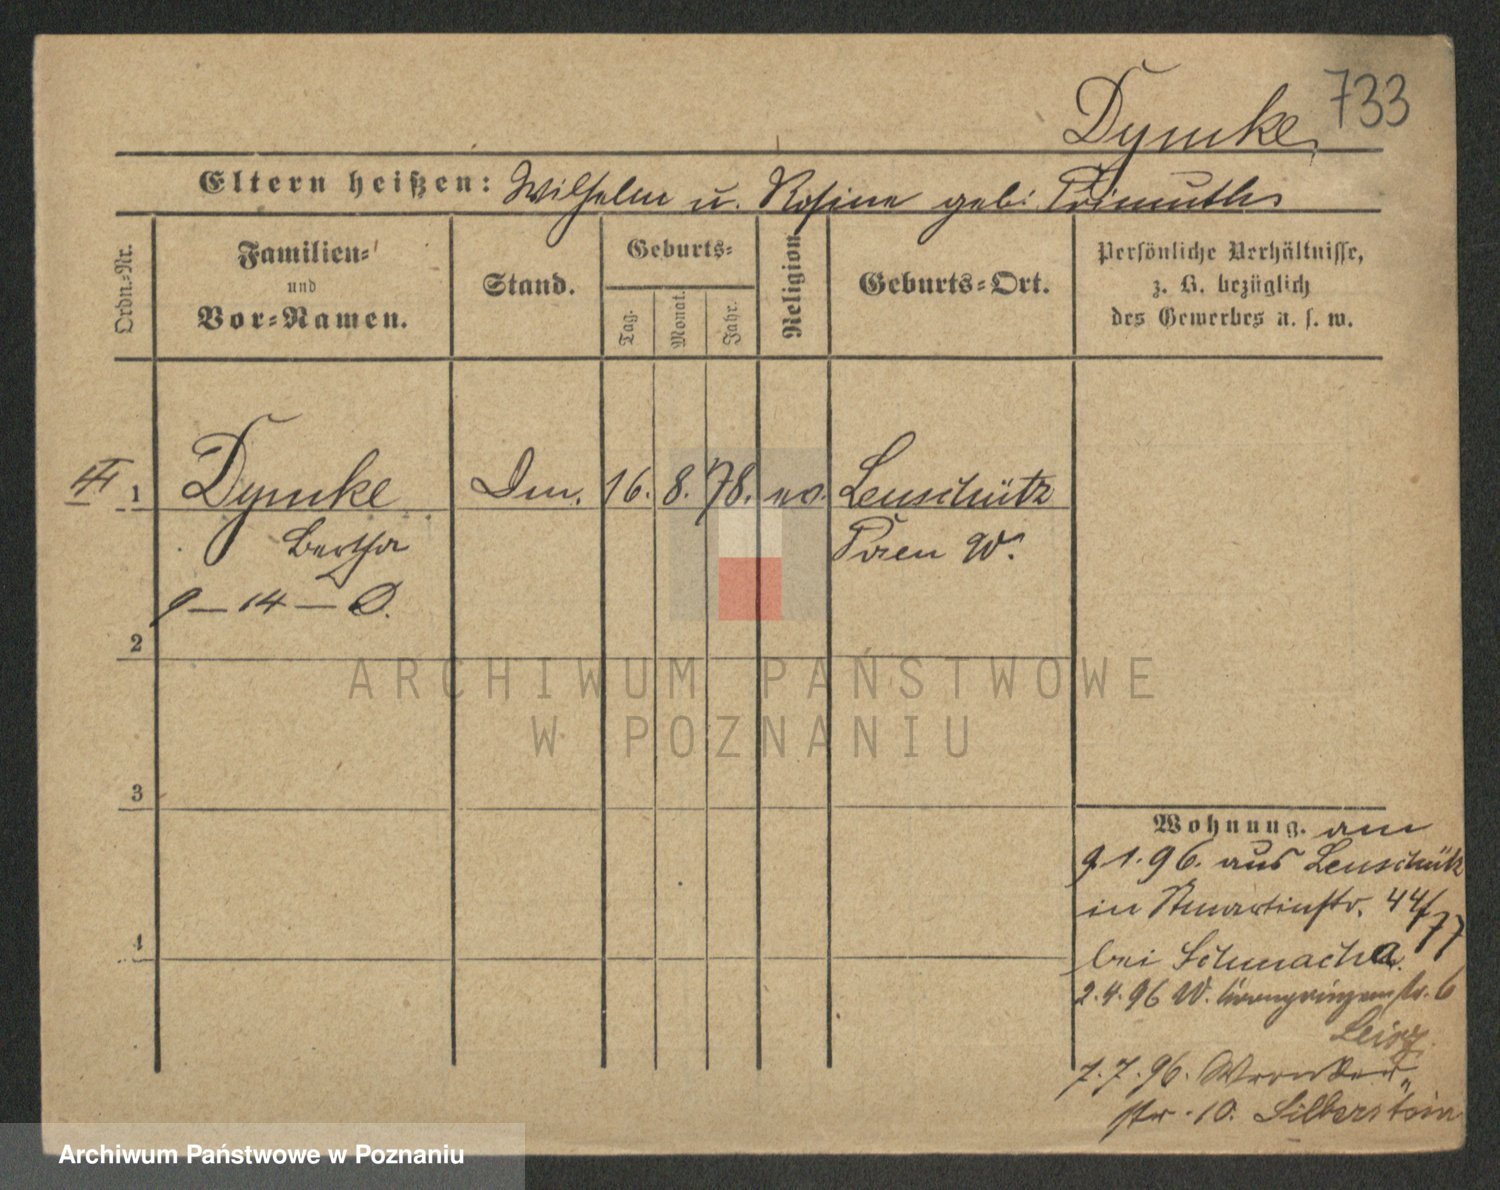 733
Dymke
Eltern heißen: Wilhelm u. Rosine geb. Primuth
Ordn.-Nr.
Familien-
und
Vor-Namen.
Stand.
Geburts-
Tag.
Monat.
Jahr.
Religion
Geburts-Ort.
Persönliche Verhältnisse,
z. B. bezüglich
des Gewerbes u. s. w.
1 Dymke Dm. 16. 8. 78. ev. Lenschütz
Bertha Posen W.
9-14-D.
2
3
4
Wohnung. am
9.1.96. aus Lenschütz
in Stmartinstr. 44/77
bei Schmacha
2.4.96 W. 6
7.7.96. Wronker-
str. 10. Silberstein
ARCHIWUM PAŃSTWOWE
W POZNANIU
Archiwum Państwowe w Poznaniu